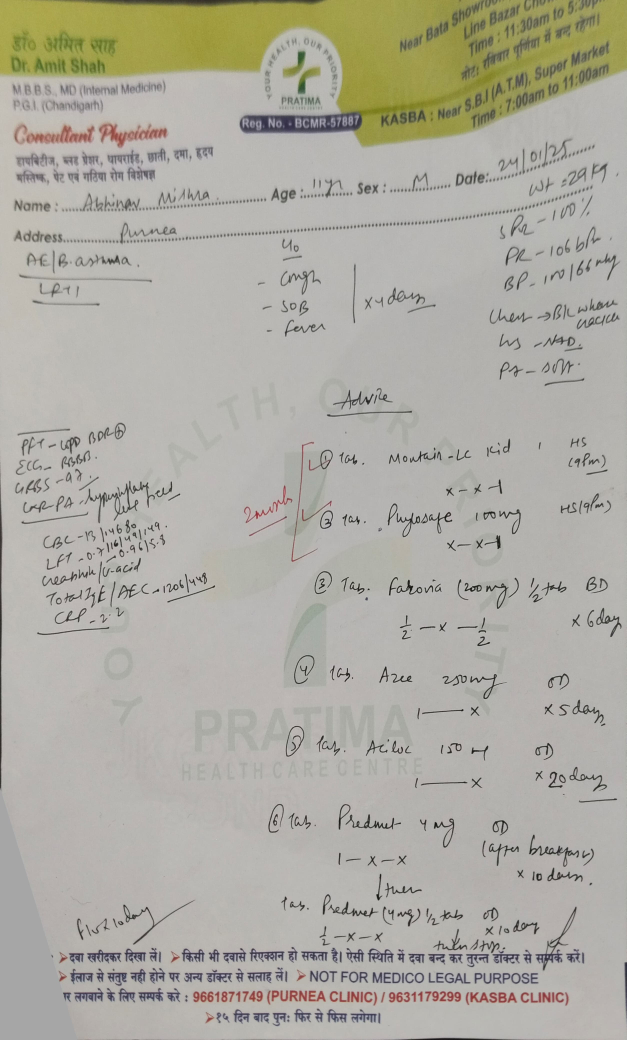 डॉ० अमित साह
Dr. Amit Shah
M.B.B.S., MD (Internal Medicine)
P.G.I. (Chandigarh)
Consultant Physician
डायबिटीज, ब्लड प्रेशर, थायराईड, छाती, दमा, हृदय
मस्तिष्क, पेट एवं गठिया रोग विशेषज्ञ
YOUR HEALTH, OUR PRIORITY
PRATIMA
HEALTH CARE CENTRE
Reg. No. - BCMR-57887
Near Bata Showroom
Line Bazar
Time : 11:30am to 5:30pm
नोट: रविवार पूर्णिया में बन्द रहेगा।
KASBA : Near S.B.I (A.T.M), Super Market
Time : 7:00am to 11:00am
Name : Abhinav Mishra Age : 11yr Sex : M Date: 24/01/25
Wt - 29 kg
Address Purnea
AE/B.asthma
LRTI
C/o
- Cough
- SOB
- Fever
x 4 days
SPO2 - 100%
PR - 106 bpm
BP - 100/66 mmHg
Chest → B/L
- NAD
PA - soft
Advice
PFT - BDR
ECG - RBBB
GRBS - 97
CXR-PA - hyperinflated lung field
CBC - 13/14680
LFT - 0.7/16/49/149
Creatinine/U-acid - 0.96/5.8
Total IgE/AEC - 1206/448
CRP - 2.2
2 month
① Tab. Montain-LC Kid 1 HS (9pm)
x - x - 1
② Tab. Phylosafe 100mg HS (9pm)
x - x - 1
③ Tab. Farovia (200mg) 1/2 tab BD
1/2 - x - 1/2 x 6 day
④ Tab. Azee 250mg OD
1 — x x 5 day
⑤ Tab. Aciloc 150 mg OD
1 — x x 20 day
⑥ Tab. Predmet 4mg OD
1 - x - x (after breakfast)
x 10 days.
↓ then
Tab. Predmet (4mg) 1/2 tab OD
1/2 - x - x x 10 day
then stop.
F/U x 10 day
YOUR HEALTH, OUR PRIORITY
PRATIMA
HEALTH CARE CENTRE
➢दवा खरीदकर दिखा लें। ➢किसी भी दवासे रिएक्शन हो सकता है। ऐसी स्थिति में दवा बन्द कर तुरन्त डॉक्टर से सम्पर्क करें।
➢ईलाज से संतुष्ट नही होने पर अन्य डॉक्टर से सलाह लें। ➢NOT FOR MEDICO LEGAL PURPOSE
र लगवाने के लिए सम्पर्क करे : 9661871749 (PURNEA CLINIC) / 9631179299 (KASBA CLINIC)
➢१५ दिन बाद पुनः फिर से फिस लगेगा।